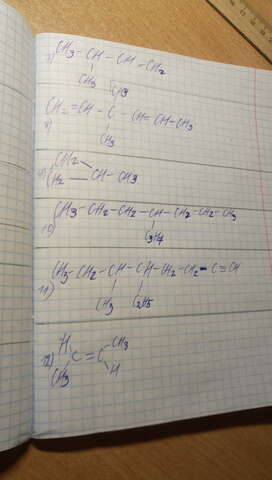 7) CH3 - CH - CH - CH2
CH3
CH3
8) CH2 = CH - C - CH = CH - CH3
CH3
9) CH2
CH2 CH - CH3
10) CH3 - CH2 - CH2 - CH - CH2 - CH2 - CH3
C3H7
11) CH3 - CH2 - CH - CH - CH2 - CH2 - C ≡ CH
CH3 C2H5
12) H CH3
C = C
CH3 H